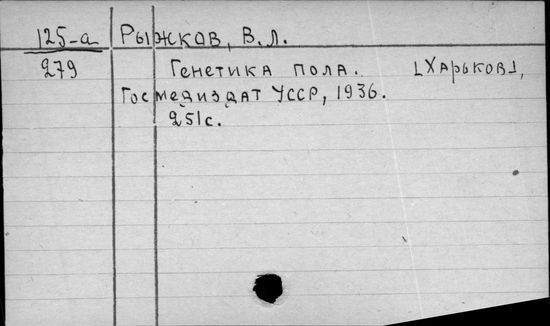 125-а Рыжков, В.Л.
279 Генетика пола. [Харьков],
Госмедиздат УССР, 1936.
251с.